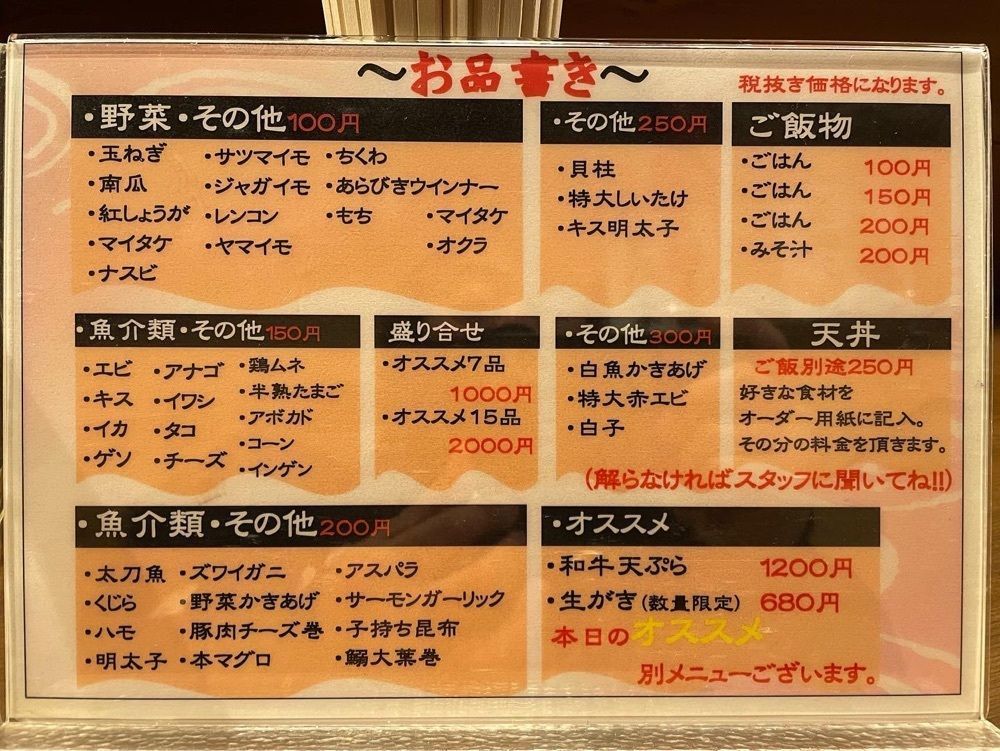 〜お品書き〜
税抜き価格になります。
・野菜・その他100円
・玉ねぎ ・サツマイモ ・ちくわ
・南瓜 ・ジャガイモ ・あらびきウインナー
・紅しょうが ・レンコン ・もち ・マイタケ
・マイタケ ・ヤマイモ ・オクラ
・ナスビ
・その他250円
・貝柱
・特大しいたけ
・キス明太子
ご飯物
・ごはん 100円
・ごはん 150円
・ごはん 200円
・みそ汁 200円
・魚介類・その他150円
・エビ ・アナゴ ・鶏ムネ
・キス ・イワシ ・半熟たまご
・イカ ・タコ ・アボカド
・ゲソ ・チーズ ・コーン
・インゲン
盛り合せ
・オススメ7品
1000円
・オススメ15品
2000円
・その他300円
・白魚かきあげ
・特大赤エビ
・白子
天丼
ご飯別途250円
好きな食材を
オーダー用紙に記入。
その分の料金を頂きます。
(解らなければスタッフに聞いてね!!)
・魚介類・その他200円
・太刀魚 ・ズワイガニ ・アスパラ
・くじら ・野菜かきあげ ・サーモンガーリック
・ハモ ・豚肉チーズ巻 ・子持ち昆布
・明太子 ・本マグロ ・鰯大葉巻
・オススメ
・和牛天ぷら 1200円
・生がき(数量限定) 680円
本日のオススメ
別メニューございます。